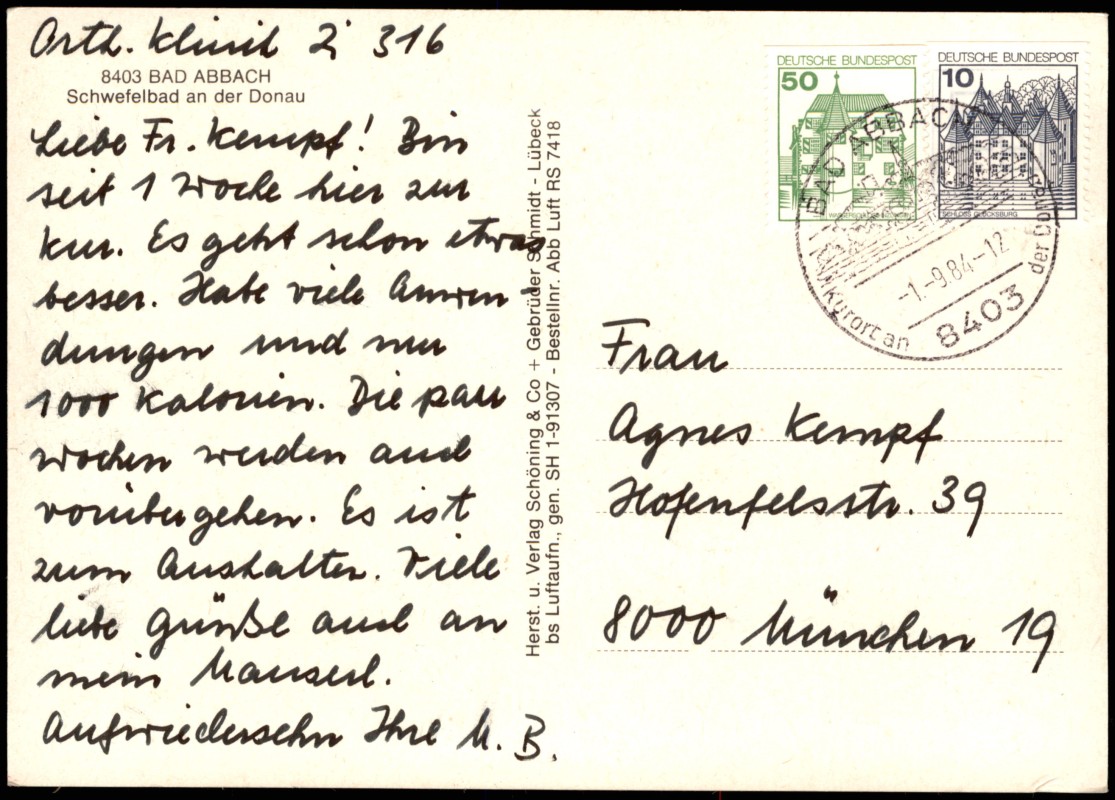 Orth. Klinik Zi 316
8403 BAD ABBACH
Schwefelbad an der Donau
Liebe Fr. Kempf! Bin
seit 1 Woche hier zur
Kur. Es geht schon etwas
besser. Habe viele Anwen
dungen und nur
1000 Kalorien. Die paar
Wochen werden auch
vorübergehen. Es ist
zum Aushalten. Viele
liebe Grüße auch an
mein Mauserl.
Aufwiedersehn Ihre M. B.
Herst. u. Verlag Schöning & Co + Gebrüder Schmidt - Lübeck
bs Luftaufn., gen. SH 1-91307 - Bestellnr. Abb Luft RS 7418
DEUTSCHE BUNDESPOST
50
DEUTSCHE BUNDESPOST
10
SCHLOSS GLÜCKSBURG
BAD ABBACH
-1.-9.84-12
Kurort an der Donau
8403
Frau
Agnes Kempf
Hofenfelsstr. 39
8000 München 19